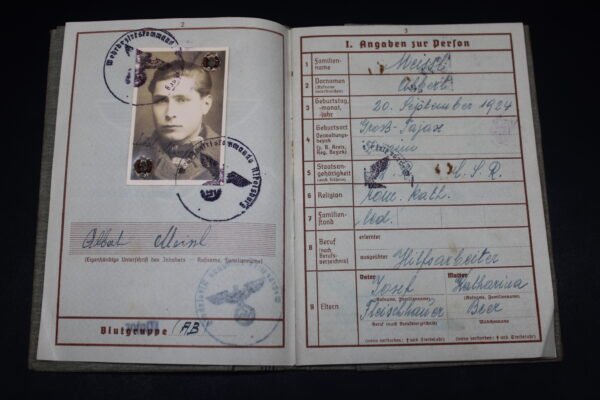 2
Wehrbezirkskommando
Albert Meisl
(Eigenhändige Unterschrift des Inhabers — Rufname, Familienname)
Blutgruppe AB
3
I. Angaben zur Person
1 Familien-
name
2 Vornamen
(Rufname
unterstreichen)
Albert
3 Geburtstag,
-monat,
-jahr
20. September 1924
4 Geburtsort
Verwaltungs-
bezirk
(z. B. Kreis,
Reg. Bezirk)
5 Staatsan-
gehörigkeit
(auch frühere)
S. R.
6 Religion
röm. kath.
7 Familien-
stand
led.
8 Beruf
(nach
Berufs-
verzeichnis)
erlernter
ausgeübter Hilfsarbeiter
9 Eltern
Vater Mutter
Josef Katharina
(Rufname, Familienname) (Rufname, Familienname)
Fleischhauer Beer
Beruf (nach Berufsverzeichnis) Mädchenname
(wenn verstorben: † und Sterbejahr) (wenn verstorben: † und Sterbejahr)